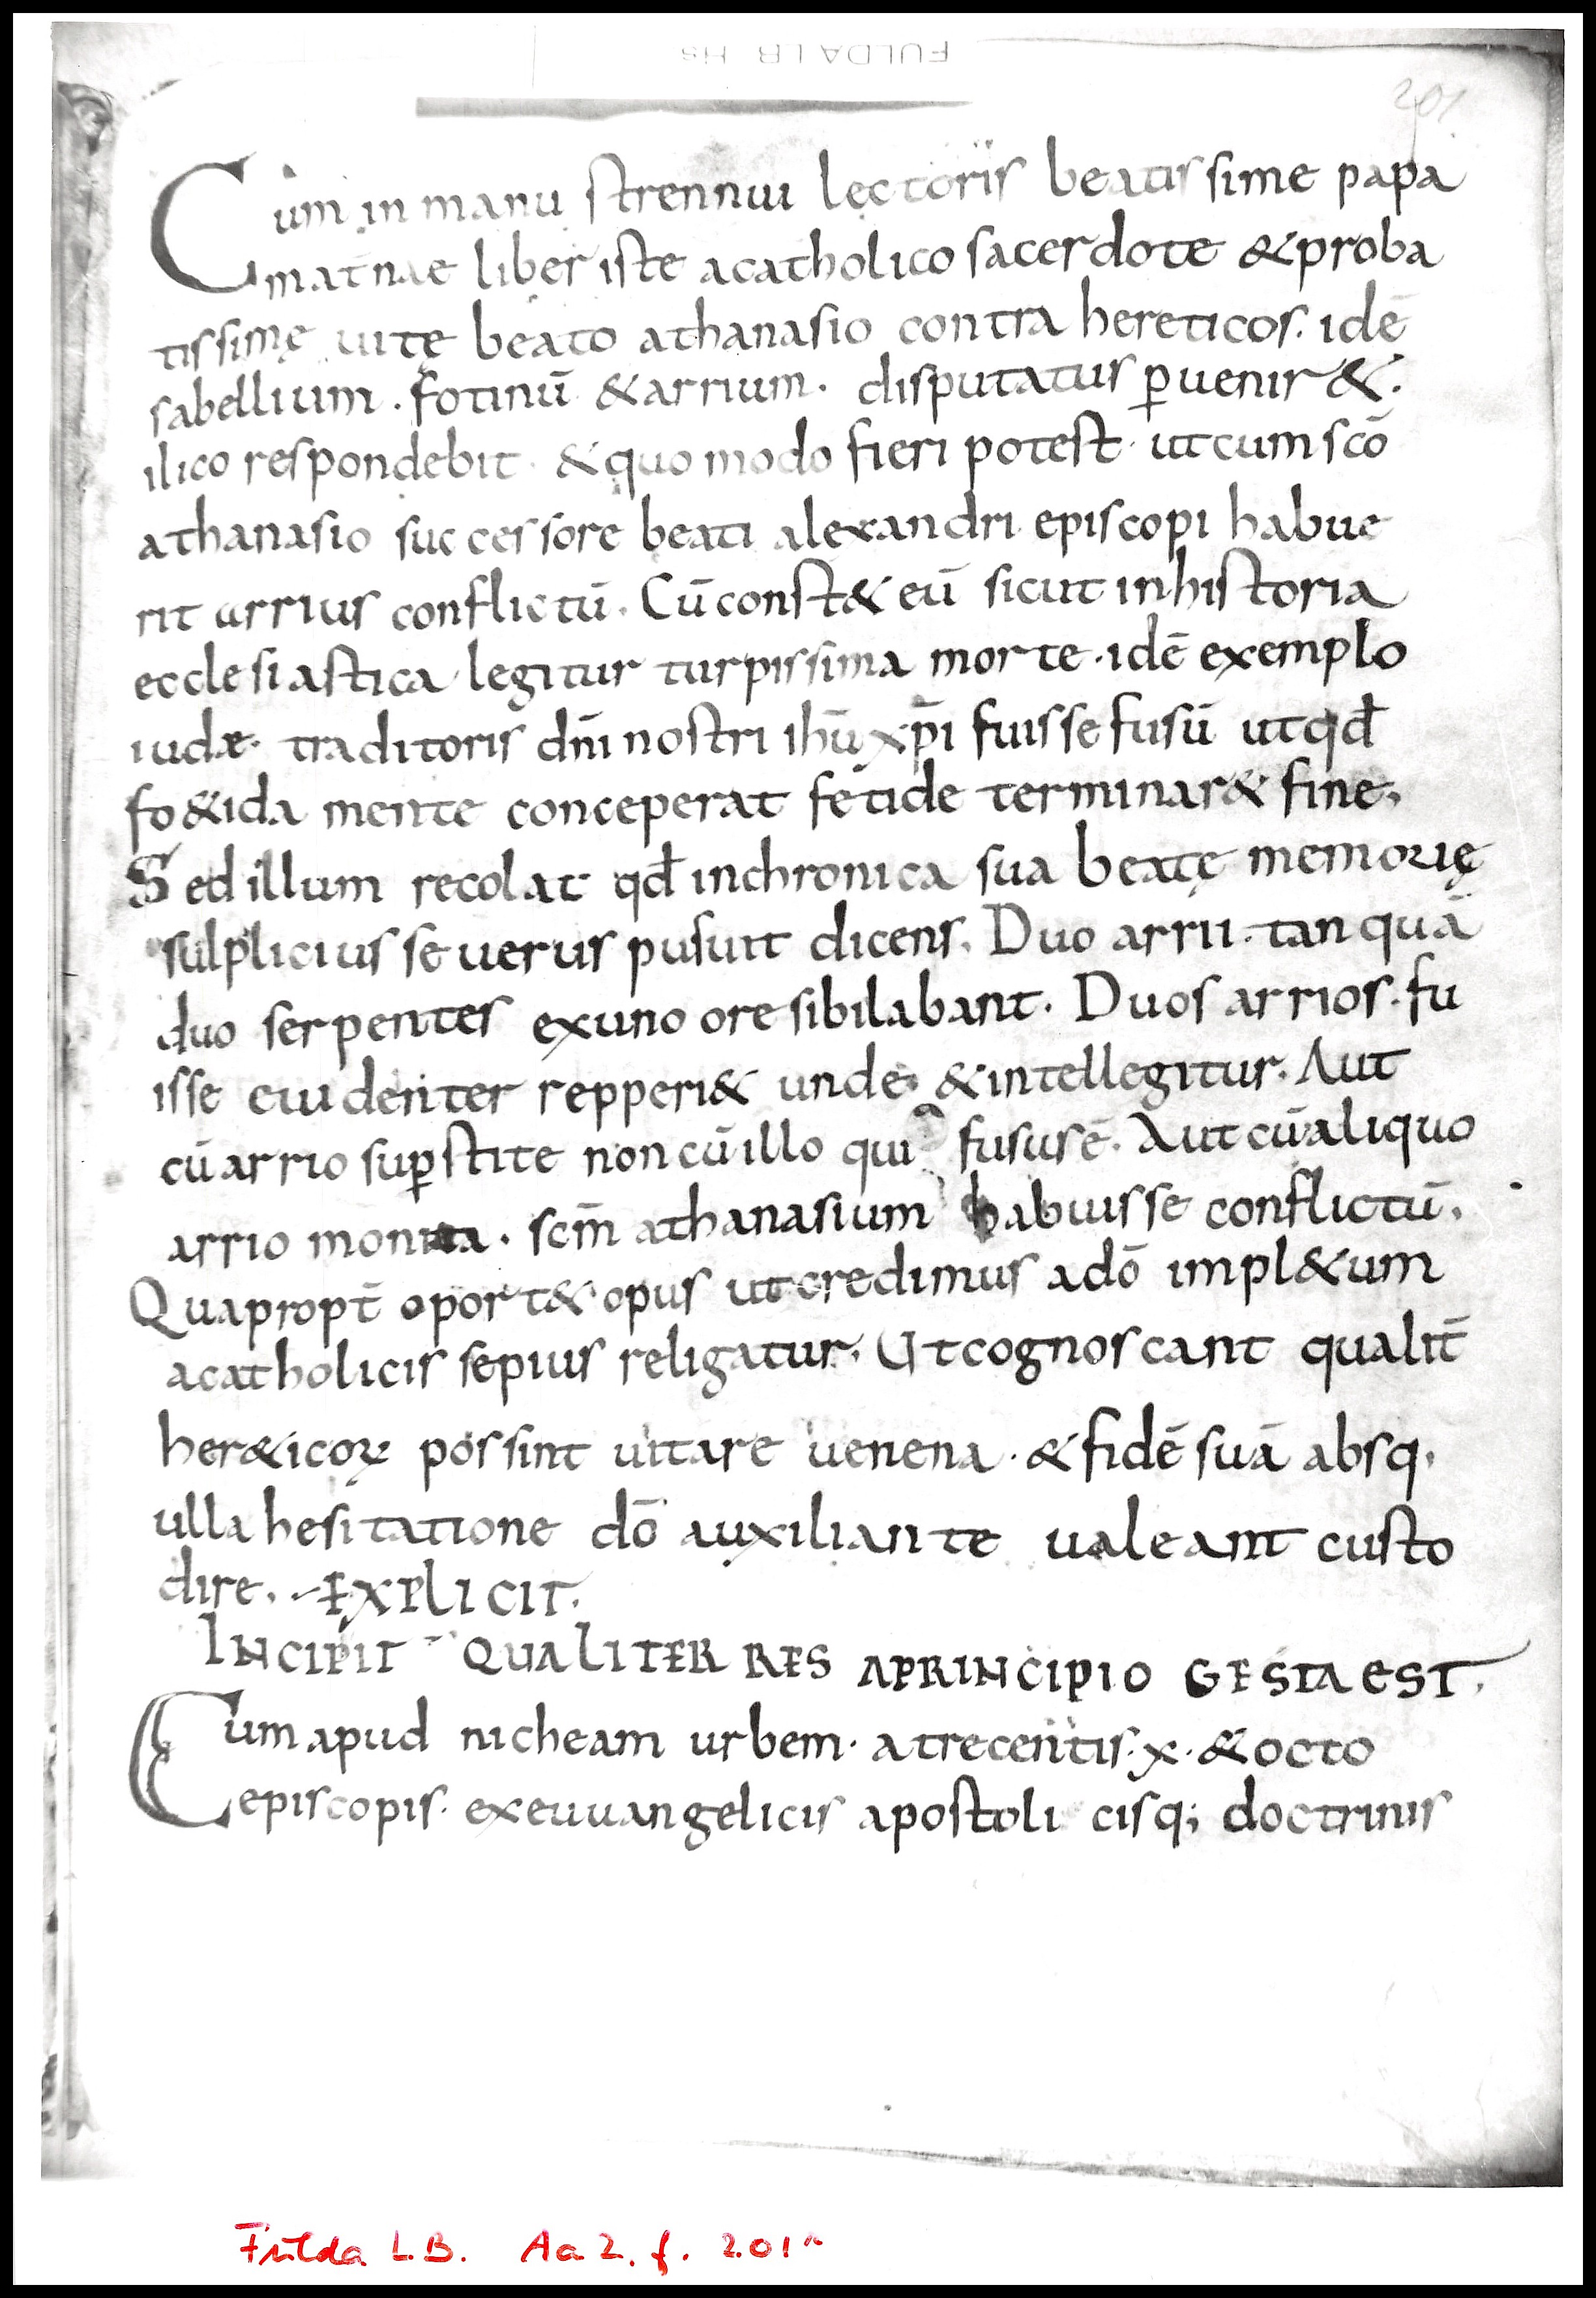 FULDA LB Hs
201
Cum in manu strennui lectoris beatissime papa
matnae liber iste acatholico sacerdote & proba
tissimę uitę beato athanasio contra hereticos. idē
sabellium. fotinū & arrium. disputatus ꝑuenir&.
ilico respondebit. & quo modo fieri potest. ut cum scō
athanasio successore beati alexandri episcopi habue
rit arrius conflictū. Cū const& eū sicut in historia
ecclesiastica legitur turpissima morte. idē exemplo
iudæ. traditoris dn̄i nostri ihū xp̄i fuisse fusū ut qđ
fo&ida mente conceperat fetide terminar& fine,
Sed illum recolat qđ inchronica sua beatę memorię
sulplicius seuerus pusuit dicens. Duo arrii. tan quā
duo serpentes exuno ore sibilabant. Duos arrios. fu
isse euidenter repperi& unde. & intellegitur. Aut
cū arrio suꝑstite non cū illo qui fusus ē. Aut cū aliquo
arrio monita. scm̄ athanasium habuisse conflictū.
Quapropt̄ oport& opus ut credimus adō impl&um
acatholicis sepius religatur, Ut cognoscant qualit̄
her&icoꝝ possint uitare uenena. & fidē suā absq.
ulla hesitatione dō auxiliante ualeant custo
dire. EXPLICIT.
INCIPIT QUALITER RES APRINCIPIO GESTA EST.
Cum apud nicheam urbem. atrecentis. x. & octo
episcopis. exeuuangelicis apostoli cisq; doctrinis
Fulda L.B. Aa 2. f. 201r